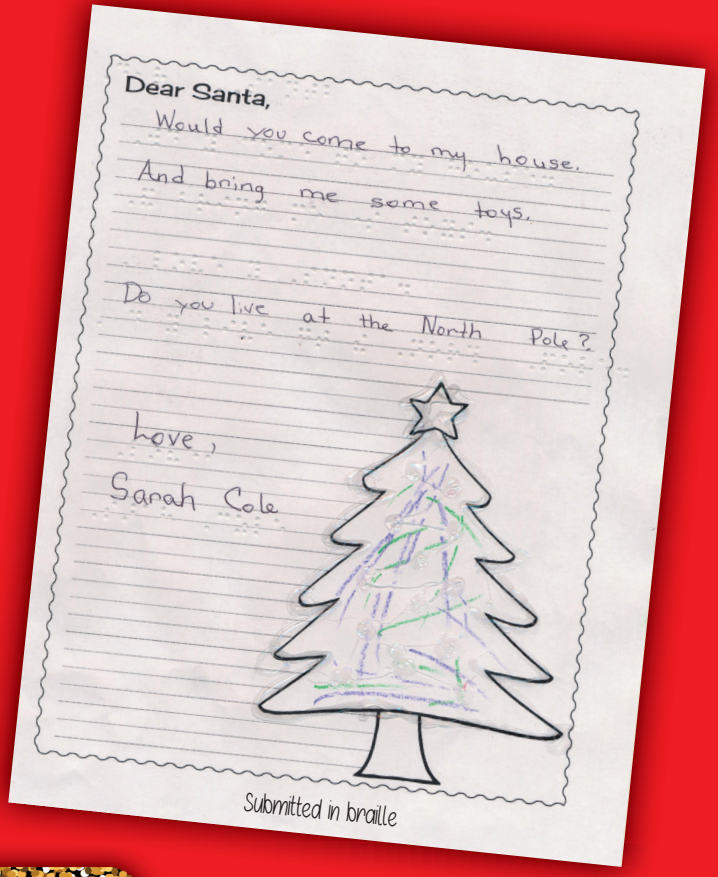 Dear Santa,
Would you come to my house.
And bring me some toys.
Do you live at the North Pole?
Love,
Sarah Cole
Submitted in braille